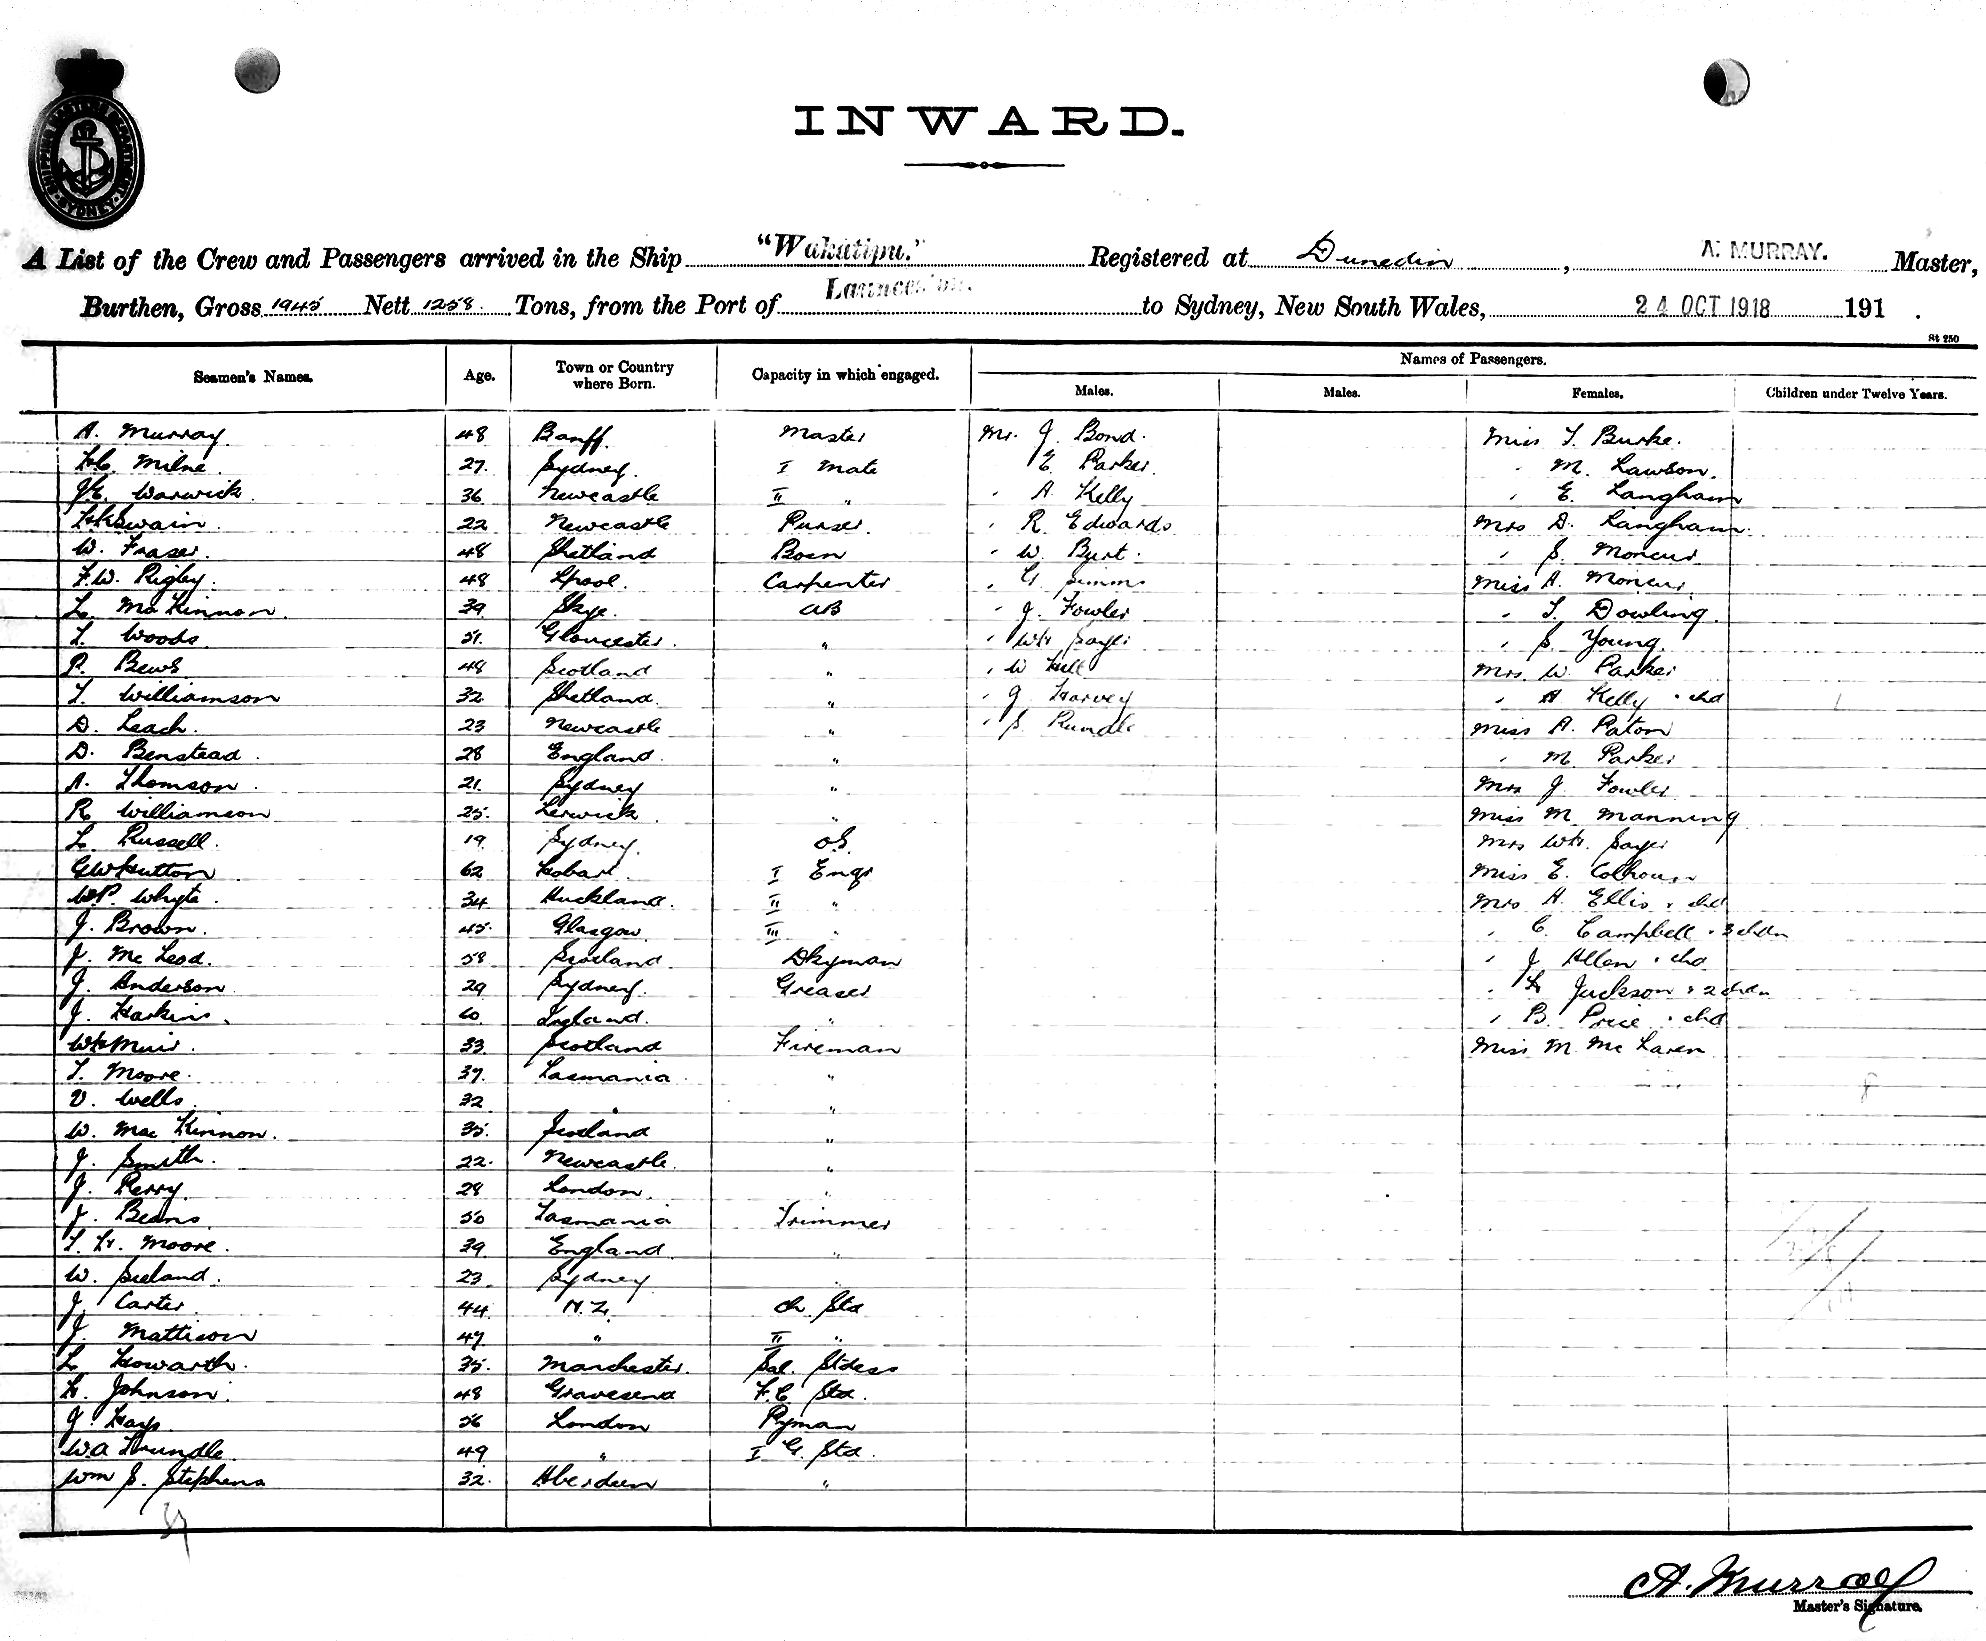 SHIPPING MASTER'S DEPARTMENT SYDNEY
INWARD.
A List of the Crew and Passengers arrived in the Ship "Wakatipu." Registered at Dunedin, A. MURRAY. Master,
Burthen, Gross 1945 Nett 1258. Tons, from the Port of Launceston. to Sydney, New South Wales, 24 OCT 1918 191 .
St 250
Names of Passengers.
Seamen's Names. Age. Town or Country where Born. Capacity in which engaged. Males. Males. Females. Children under Twelve Years.
A. Murray. 48 Banff. Master Mr. J. Bond. Miss T. Burke.
Milne. 27. Sydney. I Mate E. Parker. " M. Lawson.
J.E. Warwick. 36 Newcastle II " " A Kelly " E. Langham
Swain. 22 Newcastle Purser. " R. Edwards Mrs D. Langham.
W. Fraser. 48 Shetland Bosn " W. Burt. " S. Moncur
F.W. Rigby. 48 Lpool. Carpenter " G. Simms Miss A. Moncur
L. McKinnon. 39. Skye. AB " J. Fowler " T. Dowling.
T. Woods. 51. Gloucester. " " WH Sayer " S. Young.
P. Bews 48 Scotland " " W Hill Mrs. W. Parker
T. Williamson 32 Shetland. " " J Harvey " A Kelly & chd
D. Leach. 23 Newcastle " " S. Rundle Miss A. Paton
D. Benstead. 28 England. " " M. Parker
A. Thomson. 21. Sydney " Mrs J. Fowler
R Williamson 25. Lerwick. " Miss M. Manning
L. Russell. 19. Sydney. O.S. Mrs WH. Sayer
GW Hutton. 62 Hobart. I Engr Miss E. Calhoun
W.P. Whyte. 34 Auckland. II " Mrs A. Ellis & chd
J. Brown. 45. Glasgow. III " " C. Campbell & 3 chdn
J. McLeod. 58 Scotland. Dkyman " J Allen & chd
J. Anderson 29 Sydney. Greaser " Jackson & 2 chdn
J. Harkins. 60. England. " " B. Price & chd
WH Muir. 33. Scotland Fireman Miss M. McLaren
T. Moore. 37. Tasmania. "
V. Wells. 32 " "
W. MacKinnon. 35. Scotland "
J. Smith. 22. Newcastle. "
J. Perry. 28 London. "
J. Beams. 50 Tasmania Trimmer
T. H. Moore. 39 England. "
W. Ireland. 23. Sydney "
J. Carter. 44. N.Z. Ch. Std
J. Mattison 47. " II "
L Howarth. 35. Manchester. Sal. Stdess
H. Johnson. 48 Gravesend F.C Std.
J. Hays. 56 London Pyman
W.A Trundle. 49 " I G. Std.
Wm S. Stephens 32. Aberdeen "
37
A. Murray
Master's Signature.